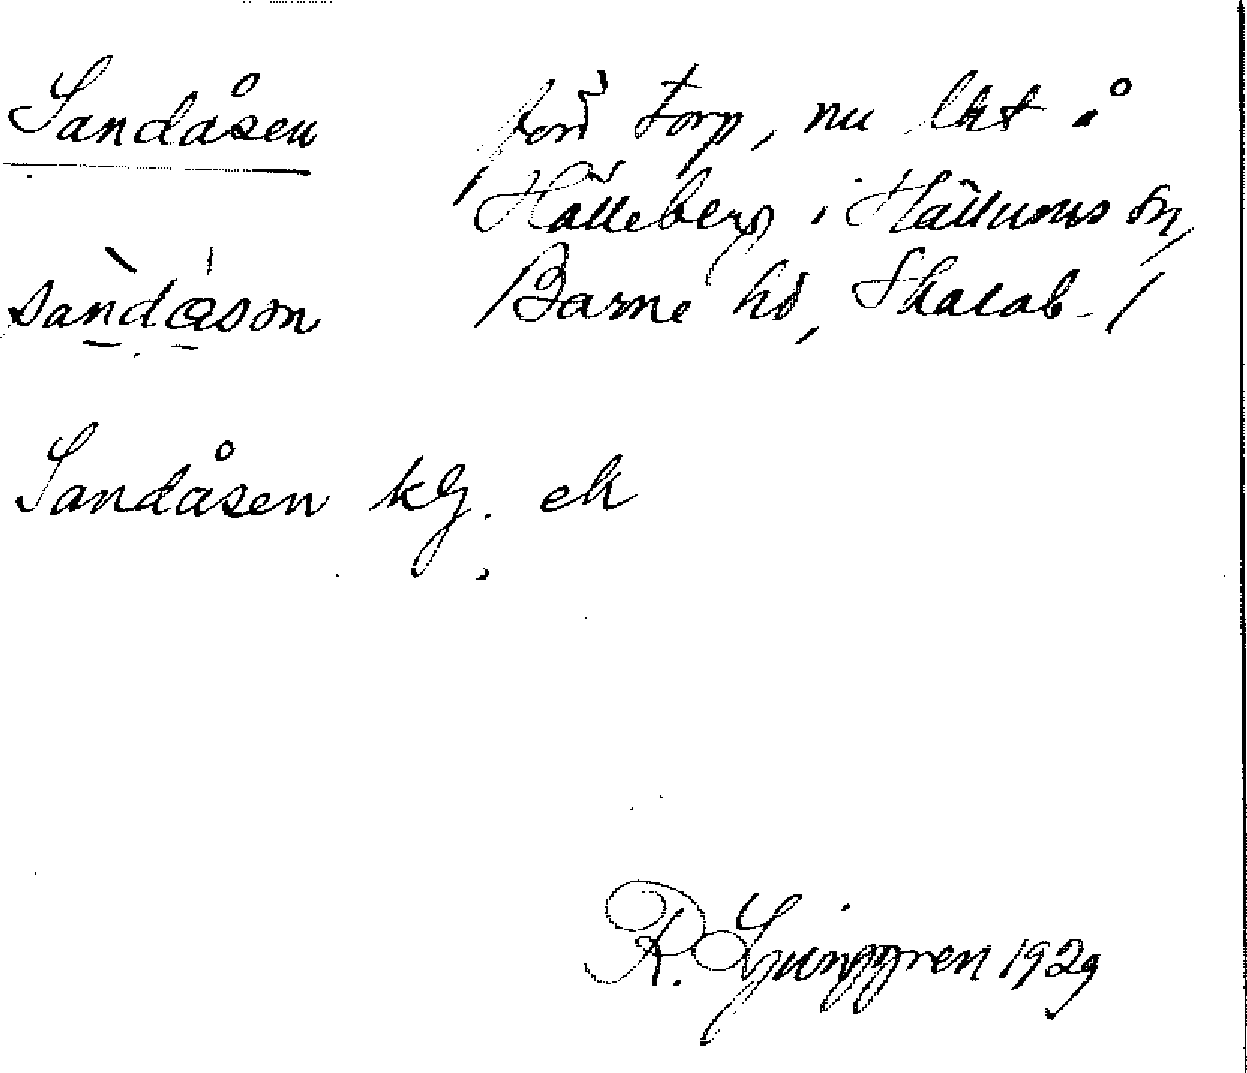 Sandåsen förr torp, nu lht å
Hälleberg i Hällums sn,
sandåson Barne hd, Skarab.
Sandåsen kg. ek
R. Ljunggren 1929